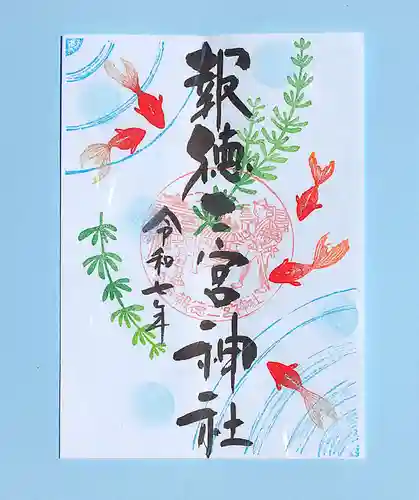 報徳二宮神社
令和七年